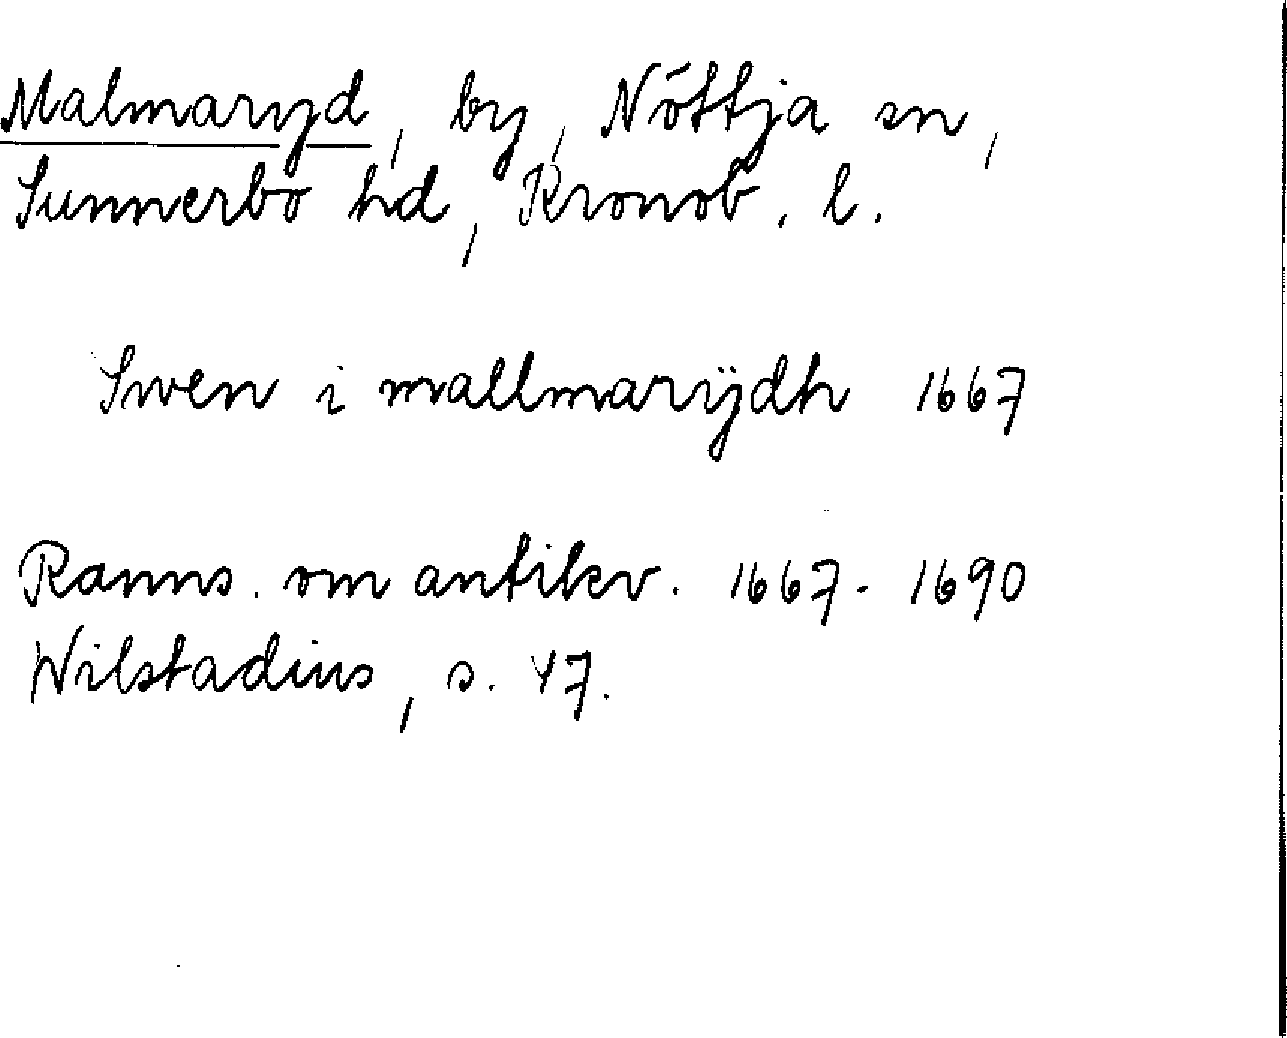 Malmaryd, by, Nöttja sn,
Sunnerbo hd, Kronob. l.
Swen i mallmarÿdh 1667
Ranns. om antikv. 1667-1690
Wilstadius, s. 47.